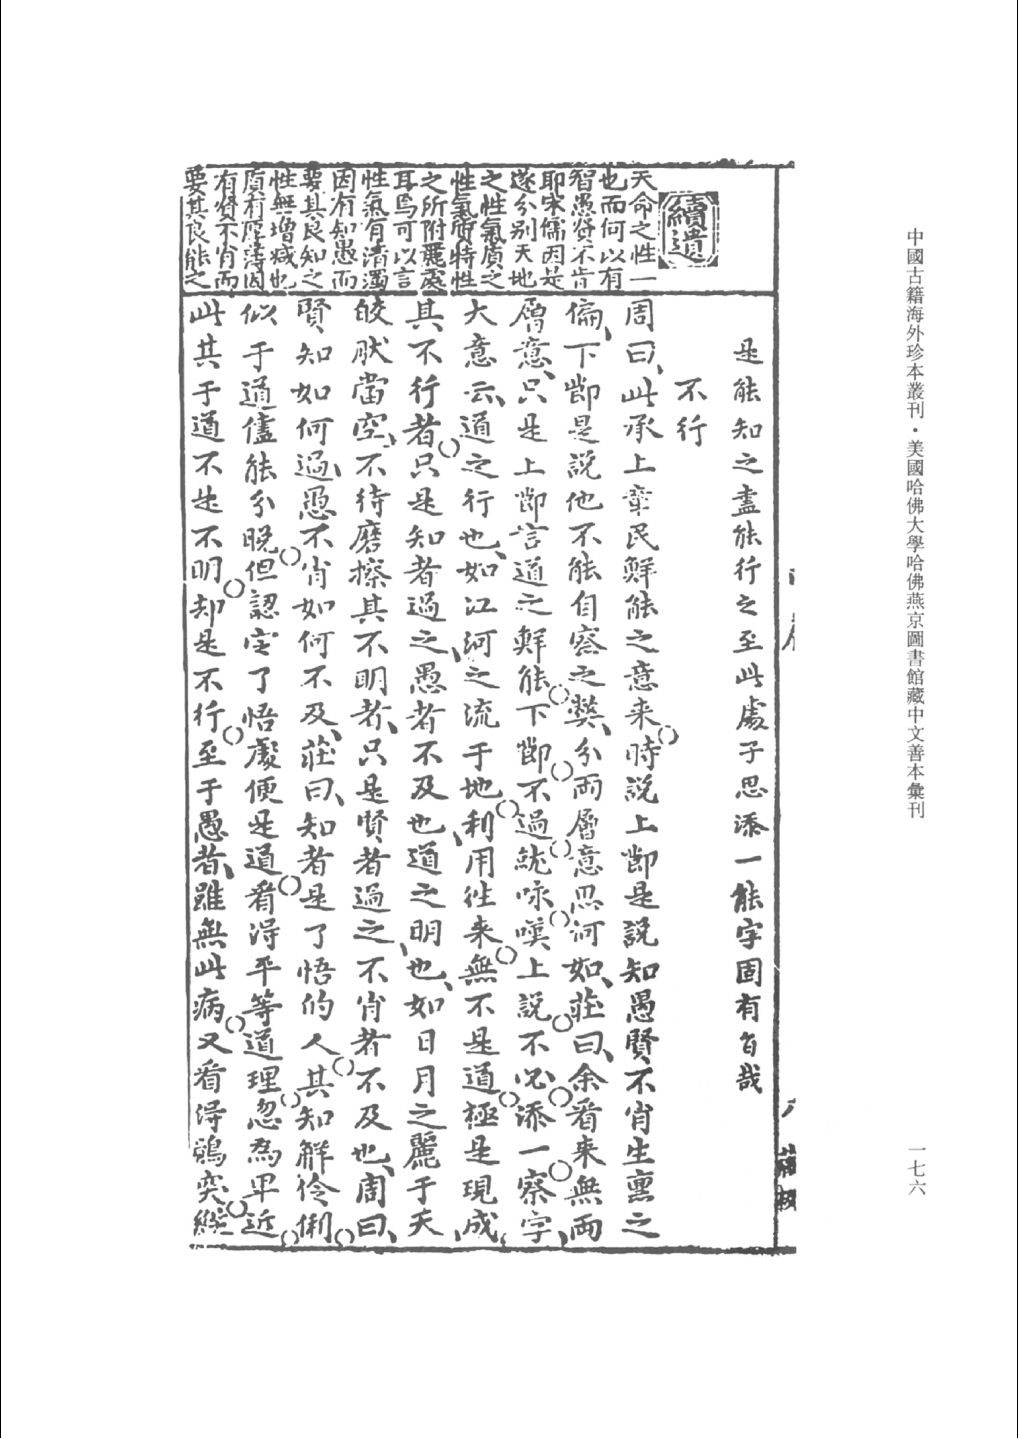 中國古籍海外珍本叢刊・美國哈佛大學哈佛燕京圖書館藏中文善本彙刊
一七六
續遺
天命之性一
也而何以有
智愚賢不肖
耶宋儒因是
遂分别天地
之性氣質之
性氣質特性
之所附麗處
耳烏可以言
性氣有清濁
因有知愚而
要其良知之
性無增減也
質有厚薄因
有賢不肖而
要其良能之
是能知之盡能行之至此處子思添一能字固有旨哉
不行
周曰、此承上章民鮮能之意来時説上節是説知愚賢不肖生稟之
偏、下節是説他不能自察之獘、分兩層意思何如、莊曰、余看来無兩
層意、只是上節言道之鮮能下節不過就咏嘆上説不必添一察字、
大意云、道之行也、如江河之流于地、利用徃来無不是道極是現成、
其不行者只是知者過之、愚者不及也道之明也、如日月之麗于天
皎肰當空、不待磨擦其不明者、只是賢者過之、不肖者不及也、周曰、
賢知如何過、愚不肖如何不及、莊曰、知者是了悟的人其知解伶俐
似于道儘能分曉但認定了悟處便是道看得平等道理忽為卑近
此其于道不是不明却是不行至于愚者、雖無此病又看得鶻突縱